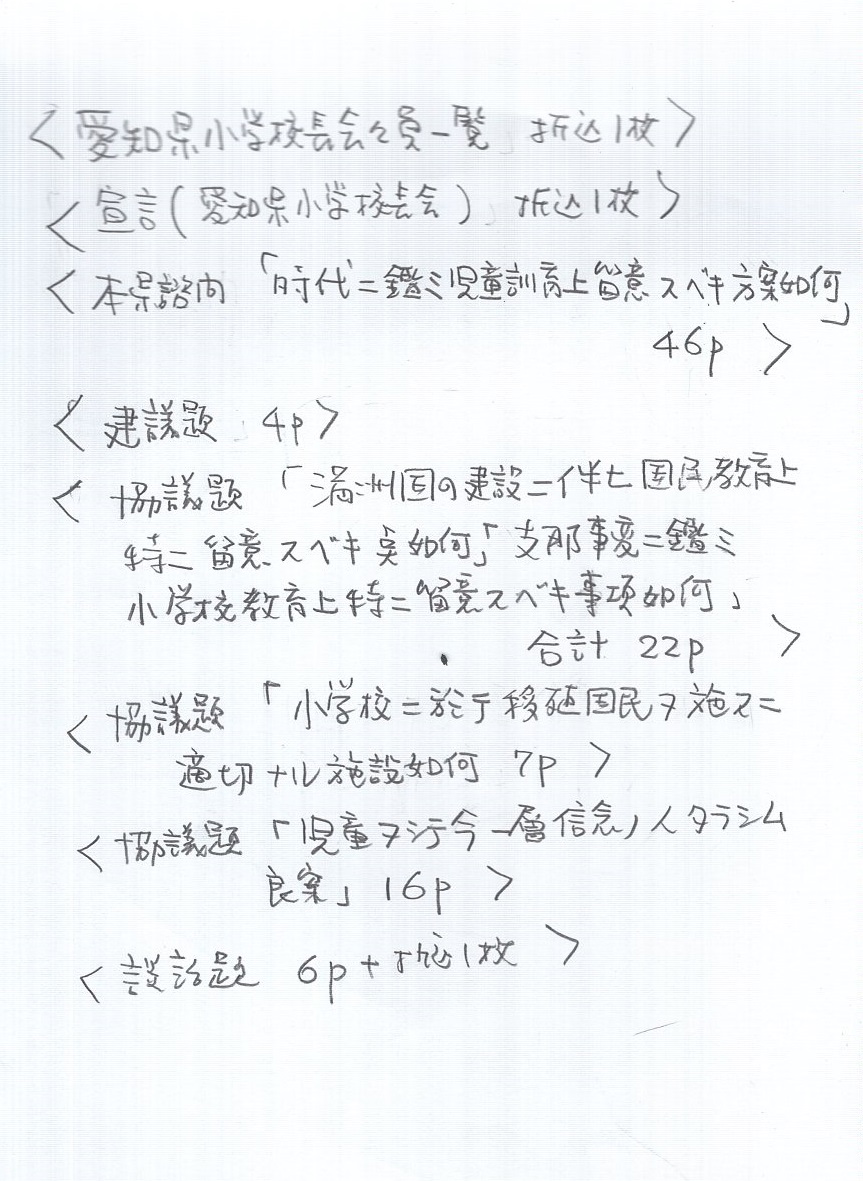 <愛知県小学校長会々員一覧 折込1枚>
<宣言(愛知県小学校長会) 折込1枚>
<本県諮問 「時代ニ鑑ミ児童訓育上留意スベキ方案如何」
46p >
<建議題 4p>
<協議題 「満洲国の建設ニ伴ヒ国民教育上
特ニ留意スベキ点如何」支那事変ニ鑑ミ
小学校教育上特ニ留意スベキ事項如何」
合計 22p >
<協議題 「小学校ニ於テ移殖国民ヲ施スニ
適切ナル施設如何 7p >
<協議題 「児童ヲシテ今一層信念ノ人タラシム
良案」 16p >
<談話題 6p+折込1枚 >